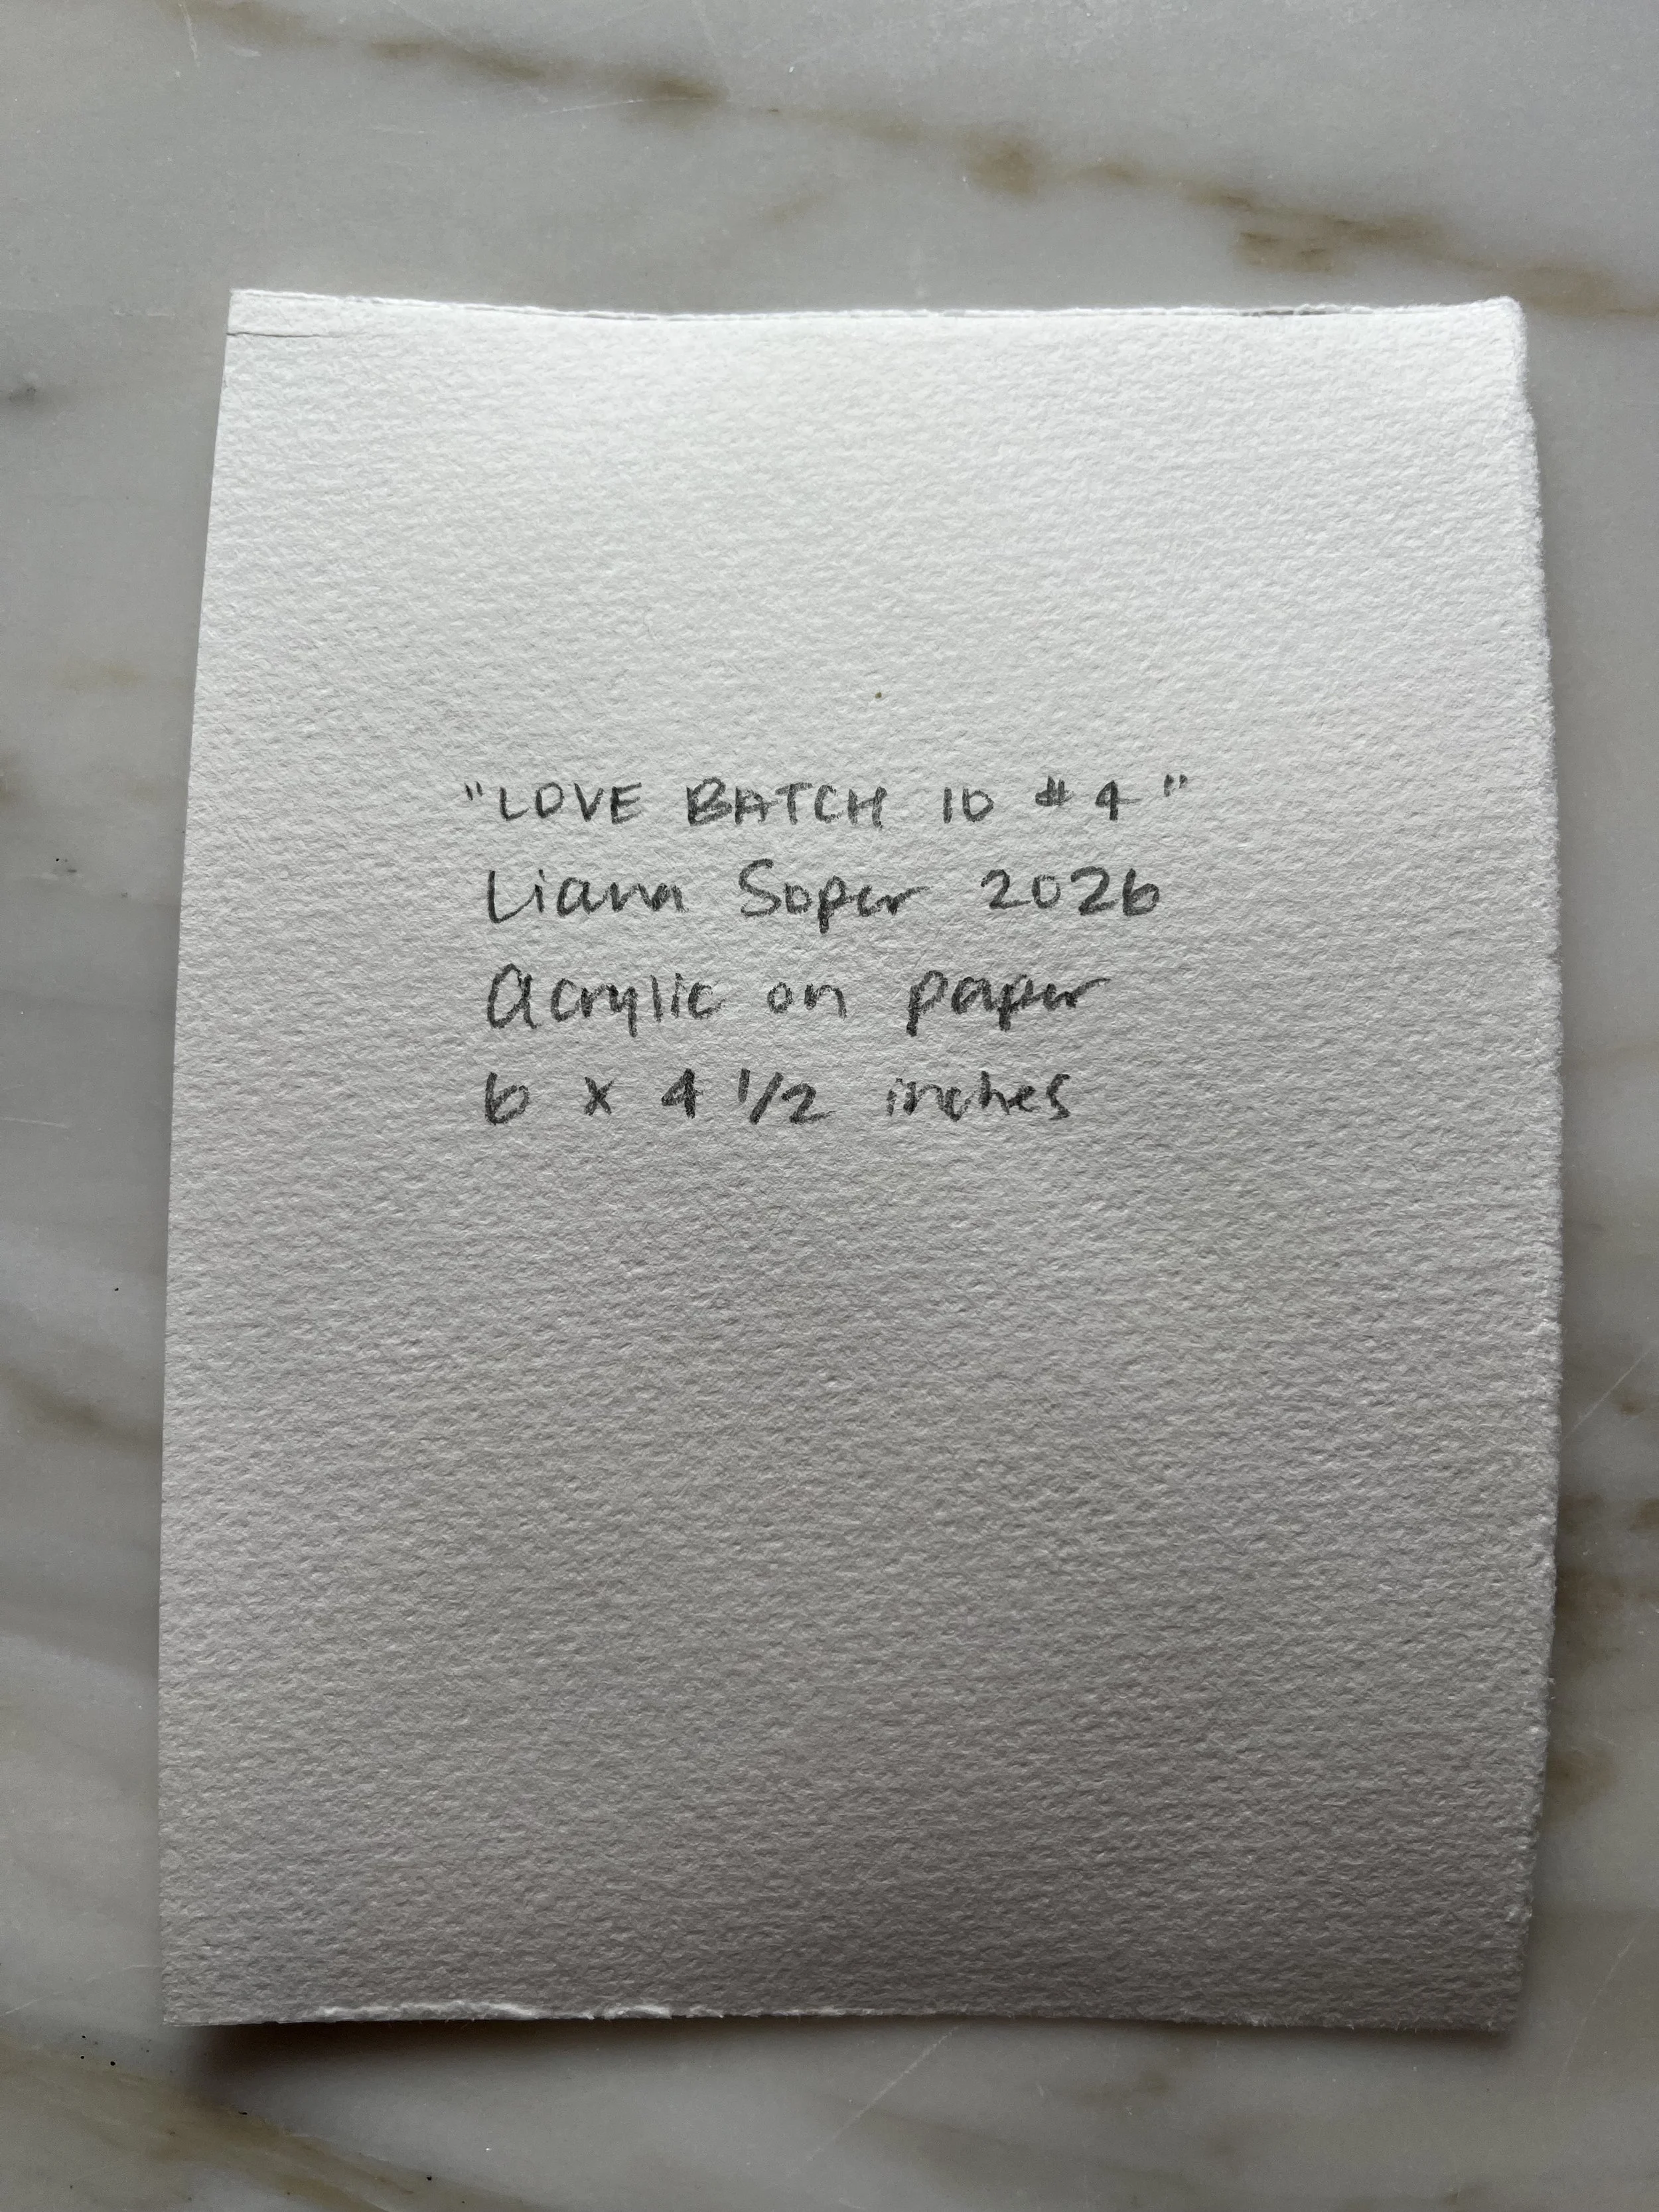 "LOVE BATCH 10 #4"
Liana Soper 2026
Acrylic on paper
6 x 4 1/2 inches